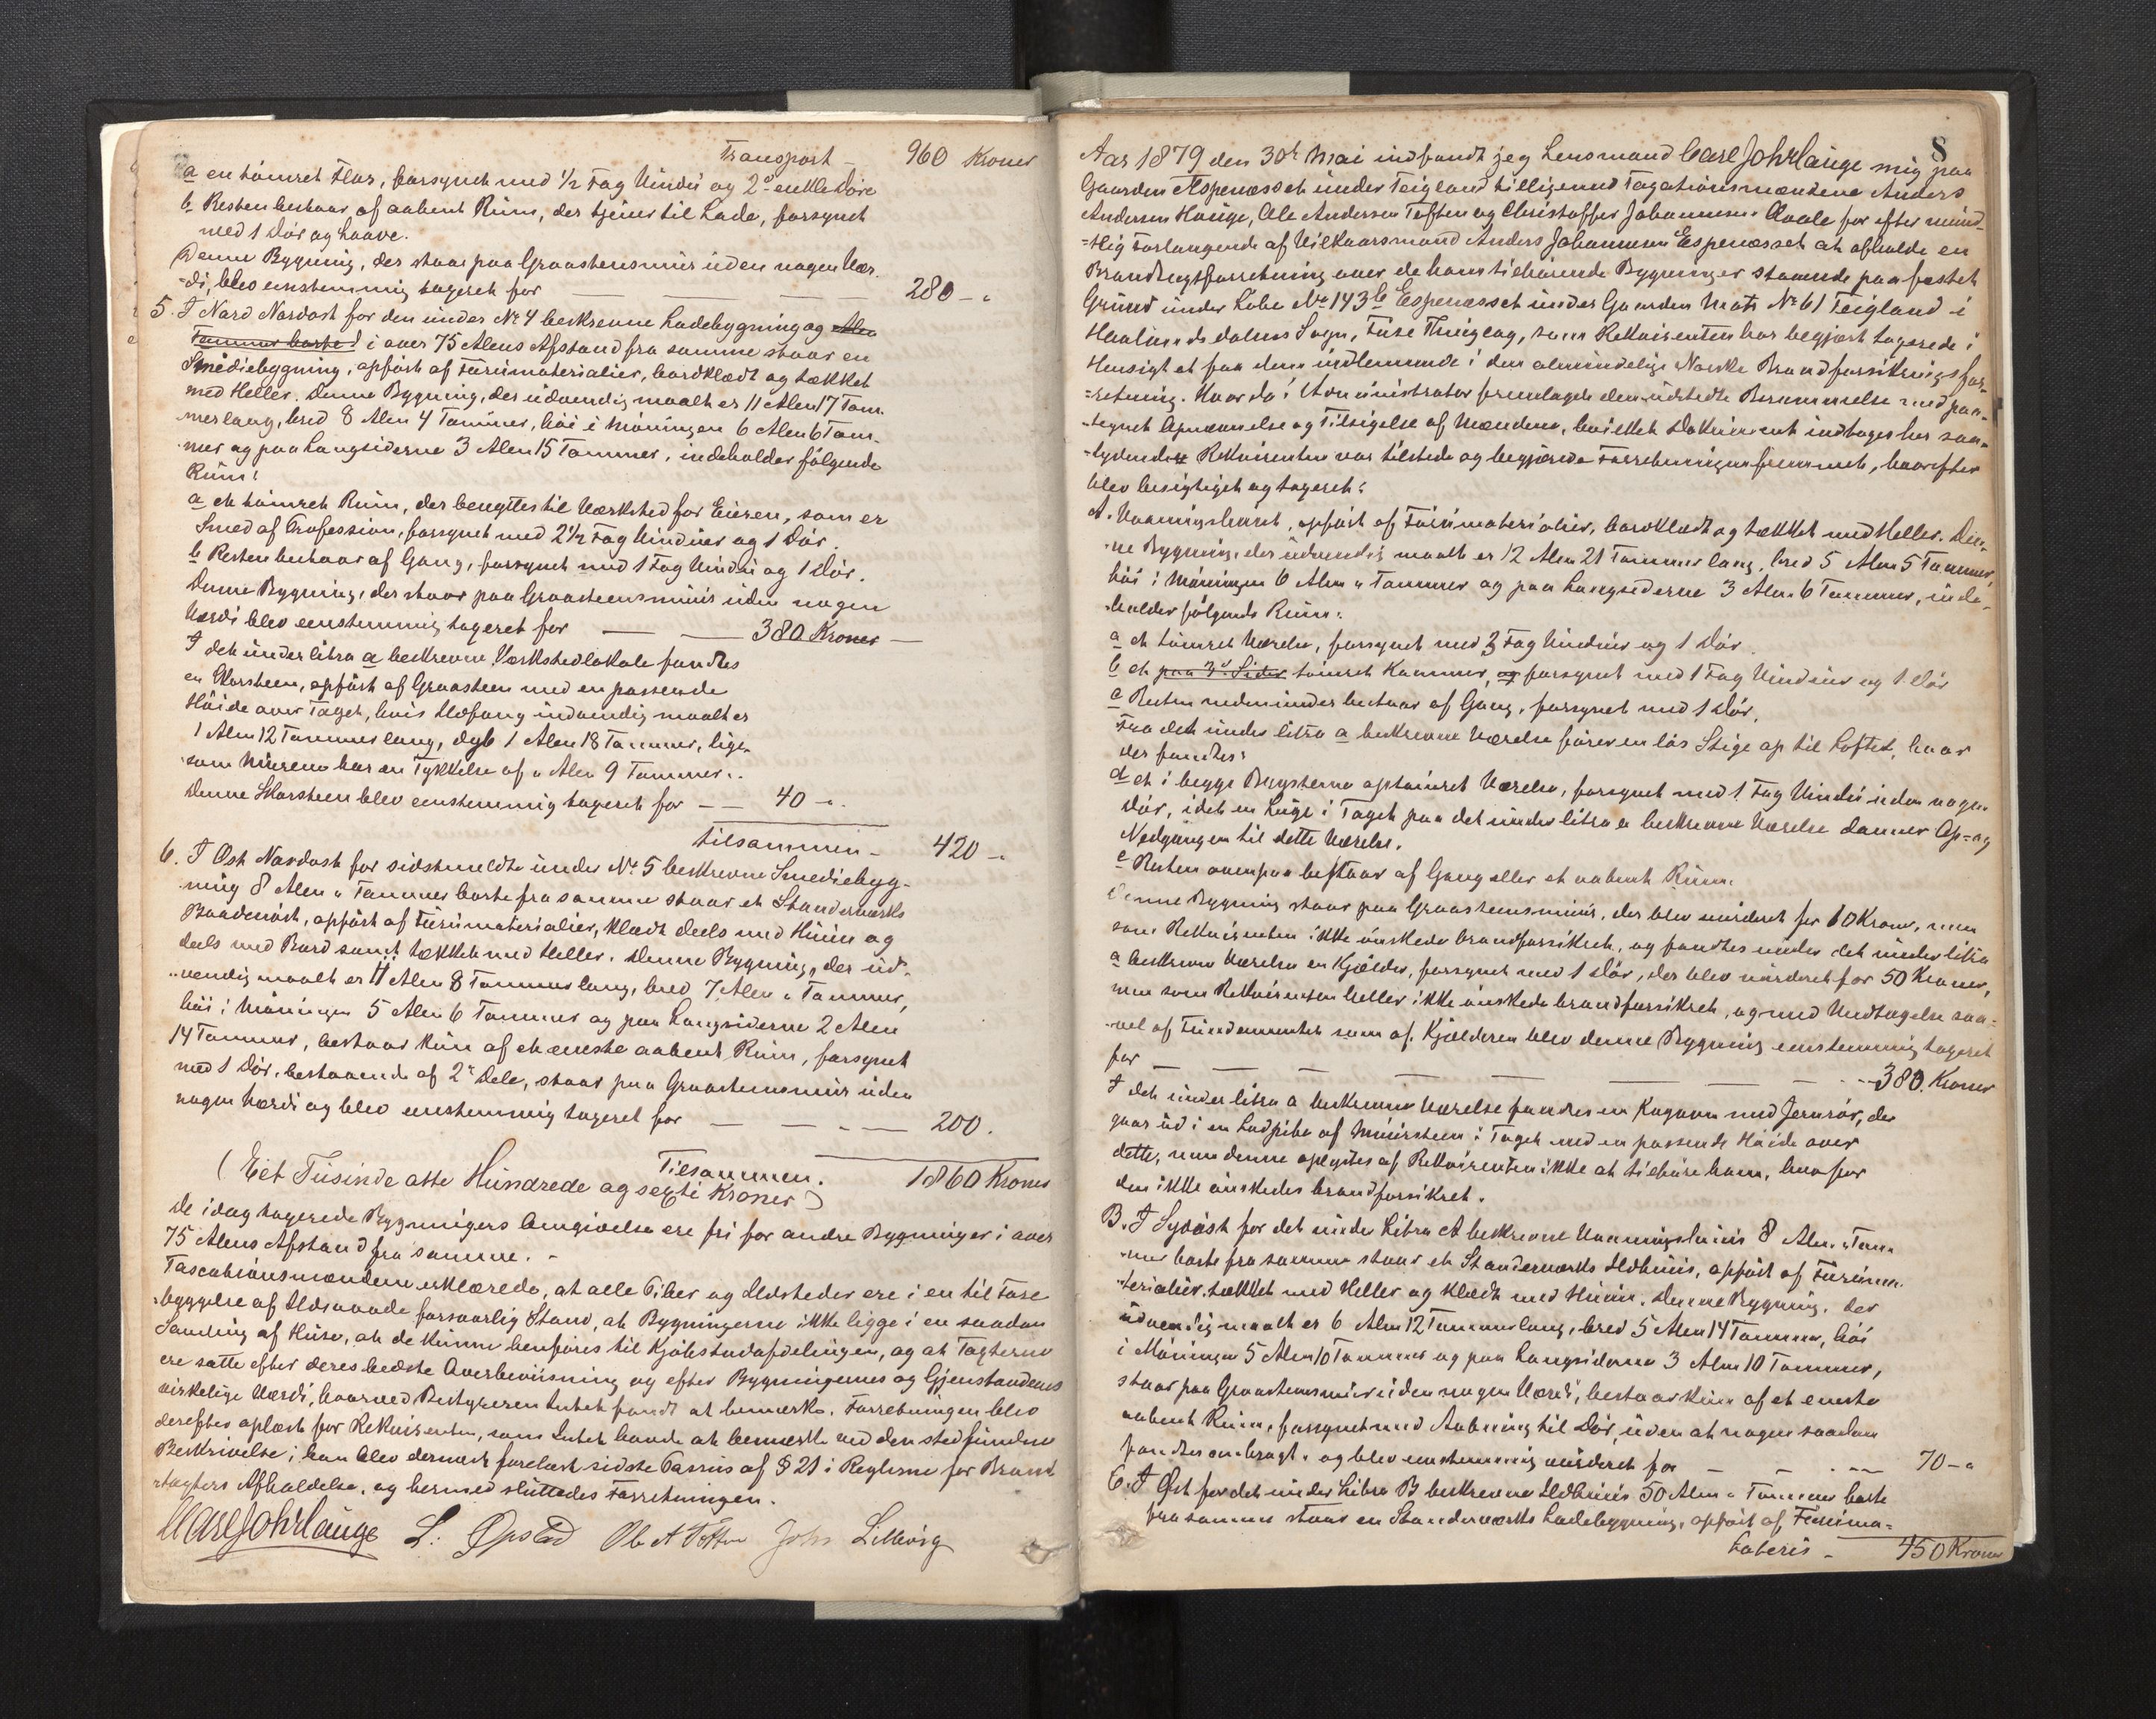 Transport – 960 Kroner
a en tømret Flor, forsynet med 1/2 Fag Vindu og 2de enkle Døre
b Resten bestaar af aabent Rum, der tjener til Lade, forsynet
med 1 Dør og Laave.
Denne Bygning, der staar paa Graasteensmuur uden nogen Vær-
=di, blev eenstemmig taxeret for — — — 280 – "
5. I Nord Nordost for den under No 4 beskrevne Ladebygning og Alen
Tommer borte i over 75 Alens Afstand fra samme staar en
Smediebygning, opført af Furumaterialier, bordklædt og tækket
med Heller. Denne Bygning, der udvendig maalt er 11 Alen 17 Tom-
mer lang, bred 8 Alen 4 Tommer, høi i Møningen 6 Alen 6 Tom-
mer og paa Langsiderne 3 Alen 15 Tommer, indeholder følgende
Rum:
a et tømret Rum, der benyttes til Værksted for Eieren, som er
Smed af Profession, forsynet med 2 1/2 Fag Vinduer og 1 Dør.
b Resten bestaar af Gang, forsynet med 1 Fag Vindu og 1 Dør.
Denne Bygning, der staar paa Graasteensmuur uden nogen
Værdi blev eenstemmig taxeret for — — 380 Kroner —
I det under litra a beskrevne Værkstedlokale fandtes
en Skorsteen, opført af Graasteen med en passende
Høide over Taget, hvis Udfang indvendig maalt er
1 Alen 12 Tommer lang, dyb 1 Alen 18 Tommer, lige-
som Muren har en Tykkelse af " Alen 9 Tommer.
Denne Skorsteen blev eenstemmig taxeret for – – 40 – ".
tilsammen – 420 – "
6. I Ost Nordost for sidstmeldte under No 5 beskrevne Smediebyg-
ning 8 Alen " Tommer borte fra samme staar et Standerværks
Baadenøst, opført af Furumaterialier, klædt deels med Huun og
deels med Bord samt tækket med Heller. Denne Bygning, der ud-
vendig maalt er 11 Alen 8 Tommer lang, bred 7 Alen " Tommer,
høi i Møningen 5 Alen 6 Tommer og paa Langsiderne 2 Alen
14 Tommer, bestaar kun af et eneste aabent Rum, forsynet
med 1 Dør, bestaaende af 2de Dele, staar paa Graasteensmuur uden
nogen Værdi og blev eenstemmig taxeret for — — – — 200.
Tilsammen. 1860 Kroner
(Eet Tusinde otte Hundrede og sexti Kroner)
De idag taxerede Bygningers Omgivelse ere fri for andre Bygninger i over
75 Alens Afstand fra samme. –
Taxationsmændene erklærede, at alle Piber og Ildsteder ere i en til Fore-
byggelse af Ildsvaade forsvarlig Stand, at Bygningerne ikke ligge i en saadan
Samling af Huse, at de kunne henføres til Kjøbstadafdelingen, og at Taxterne
ere satte efter deres bedste Overbeviisning og efter Bygningernes og Gjenstandenes
virkelige Værdi, hvorved Bestyreren Intet fandt at bemærke. Forretningen blev
derefter oplæst for Rekvirenten, som Intet havde at bemærke ved den stedfundne
Beskrivelse; han blev dernæst forelæst sidste Passus af § 21 i Reglerne for Brand-
taxters Afholdelse, og hermed sluttedes Forretningen.
Carl Johr Lange L. Øpstad Ole A Toften John Lillevig
8
Aar 1879 den 30te Mai indfandt jeg Lensmand Carl Johr Lange mig paa
Gaarden Espenæsset under Teigland tilligemed Taxationsmændene Anders
Andersen Hauge, Ole Andersen Toften og Christoffer Johannesen Qvale for efter mund-
=tlig Forlangende af Vilkaarsmand Anders Johannesen Espenæsset at afholde en
Brandtaxtforretning over de ham tilhørende Bygninger staaende paa fæstet
Grund under Løbe No 143b Espenæsset under Gaarden Matr No 61 Teigland i
Haalandsdalens Sogn, Fuse Thinglag, som Rekvirenten har begjært taxerede i
Hensigt at faa dem indlemmede i den almindelige Norske Brandforsikringsfor-
=retning. Hvorda! Administrator fremlagde den udstedte Berammelse med paa-
tegnet Opnævnelse og Tilsigelse af Mændene, hvilket Dokument indtages her saa-
=lydende: Rekvirenten var tilstede og begjærede Forretningen fremmet, hvorefter
blev besigtiget og taxeret:
A. Vaaningshuset, opført af Furumaterialier, bordklædt og tækket med Heller. Den-
ne Bygning, der udvendig maalt er 12 Alen 21 Tommer lang, bred 5 Alen 5 Tommer,
høi i Møningen 6 Alen " Tommer og paa Langsiderne 3 Alen 6 Tommer, inde-
holder følgende Rum:
a et tømret Værelse, forsynet med 3 Fag Vinduer og 1 Dør.
b et paa 3de Sider tømret Kammer, og forsynet med 1 Fag Vinduer og 1 Dør
c Resten nedenunder bestaar af Gang, forsynet med 1 Dør.
Fra det under litra a beskrevne Værelse fører en løs Stige op til Loftet, hvor
der fandtes:
d et i begge Røysterne optømret Værelse, forsynet med 1 Fag Vindu uden nogen
Dør, idet en Luge i Taget paa det under litra a beskrevne Værelse danner Op- og
Nedgangen til dette Værelse.
e Resten ovenpaa bestaar af Gang eller et aabent Rum.
Denne Bygning staar paa Graasteensmuur, der blev vurderet for 60 Kroner, men
som Rekvirenten ikke ønskede brandforsikret, og fandtes under det under litra
a beskrevne Værelse en Kjælder, forsynet med 1 Dør, der blev vurderet for 50 Kroner,
men som Rekvirenten heller ikke ønskede brandforsikret, og med Undtagelse saa-
vel af Fundamentet som af Kjælderen blev denne Bygning eenstemmig taxeret
for — — — — — — — – – 380. Kroner
I det under litra a beskrevne Værelse fandtes en Kogovn med Jernrør, der
gaar ud i en Ludpibe af Muursteen i Taget med en passende Høide over
dette, men denne oplystes af Rekvirenten ikke at tilhøre ham, hvorfor
den ikke ønskedes brandforsikret.
B. I Sydøst for det under Litra A beskrevne Vaaningshuus 8 Alen " Tom-
mer borte fra samme staar et Standerværks Ildhuus, opført af Furuma-
terialier, tækket med Heller og klædt med Huun. Denne Bygning, der
udvendig maalt er 6 Alen 12 Tommer lang, bred 5 Alen 14 Tommer, høi
i Møningen 5 Alen 10 Tommer og paa Langsiderne 3 Alen 10 Tommer,
staar paa Graasteensmuur uden nogen Værdi, bestaar kun af et eneste
aabent Rum, forsynet med Aabning til Dør, uden at nogen saadan
fandtes anbragt, og blev eenstemmig vurderet for — – – – 70 – "
C. I Øst for det under Litra B beskrevne Ildhuus 50 Alen " Tommer borte
fra samme staar en Standerværks Ladebygning, opført af Furuma=
Lateris – 450 Kroner